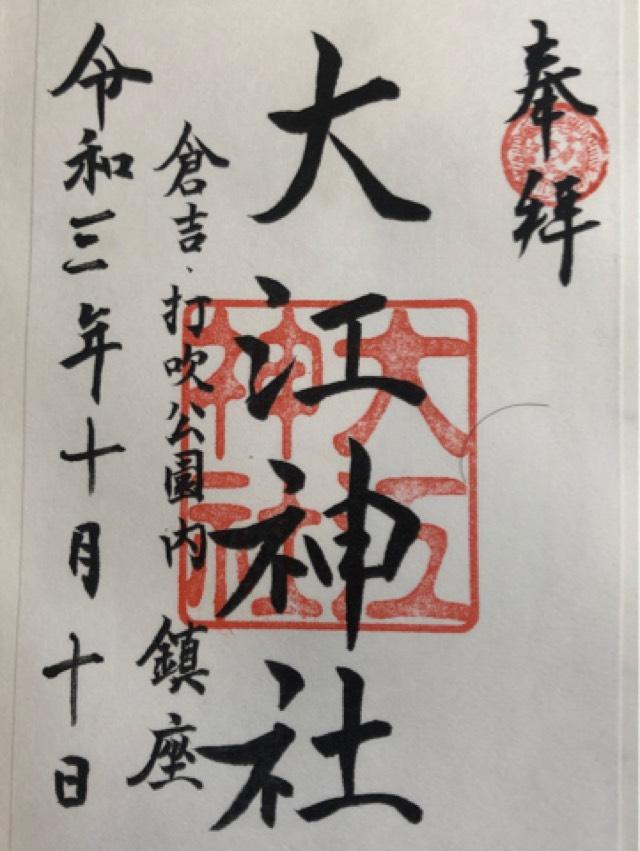 奉拝
大江神社
倉吉、打吹公園内 鎮座
令和三年十月十日